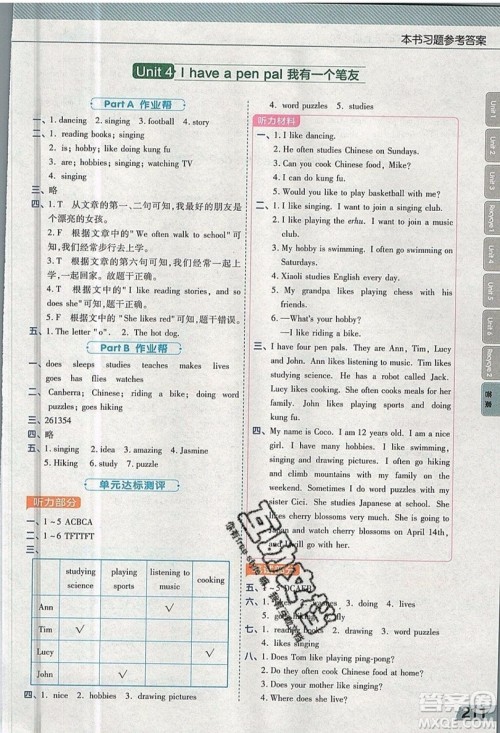 本书习题参考答案
Unit 4 I have a pen pal 我有一个笔友
Part A 作业帮
一、1. dancing 2. singing 3. football 4. story
二、1. reading books; singing
2. is; hobby; singing
3. are; hobbies; singing; watching TV
4. is; likes; singing
三、略
四、1. T 从文章的第一、二句可知,我最好的朋友是个漂亮的女孩。
2. F 根据文章中的“We often walk to school”可知,我们经常步行去上学。
3. F 根据文章中的第六句可知,我们一起做家庭作业。故题干正确。
4. T 根据文章中的“I like reading stories, and so does she”可知,题干正确。
5. F 根据文章中的“She likes red”可知,题干错误。
五、1. The letter “o”. 2. The hot dog.
Part B 作业帮
一、does sleeps studies teaches makes lives
goes has flies watches
二、Canberra; Chinese; riding a bike; doing word puzzles; going hiking
三、261354
四、1. singing 2. idea 3. amazing 4. Jasmine
5. Hiking 6. study 7. puzzles
五、略
单元达标测评
听力部分
一、1~5 ACBCA
二、1~6 TFTTFT
三、
studying science playing sports listening to music cooking
Ann √
Tim √
Lucy √
John √
四、1. nice 2. hobbies 3. drawing pictures
4. word puzzles 5. studies
听力材料
一、1. I like dancing.
2. He often studies Chinese on Sundays.
3. Can you cook Chinese food, Mike?
4. I often do kung fu.
5. Would you like to play basketball with me?
二、1. I like singing. I want to join a singing club.
2. I like playing the erhu. I want to join a music club.
3. My hobby is swimming. I often go swimming on Saturdays.
4. Xiaoli studies English every day.
5. My grandpa likes playing chess with his friends.
6. —What's your hobby?
—I like riding a bike.
三、I have four pen pals. They are Ann, Tim, Lucy and John. Ann likes listening to music. Tim likes studying science. He has a robot called Jack. Lucy likes cooking. She often makes food for her family. John likes playing sports and doing kung fu.
四、My name is Coco. I am 12 years old. I am a nice girl. I have many hobbies. I like singing, hiking and drawing pictures. I often go to climb the mountains with my family on the weekend. Sometimes I do word puzzles with my sister Cici. She often studies Japanese. She likes cherry blossoms very much. She is going to Japan and watch cherry blossoms on April 14th, and I will go with her.
五、1~5 DCAEB
六、1. hobbies 2. amazing 3. doing 4. lives
5. goes
七、1. reading books 2. drawing 3. football
4. likes singing
八、1. Does Tom like playing ping-pong?
2. Do they often cook Chinese food?
3. Does your mother like singing?
Unit 1
Unit 2
Unit 3
Recycle 1
Unit 4
Unit 5
Unit 6
Recycle 2
答案
217